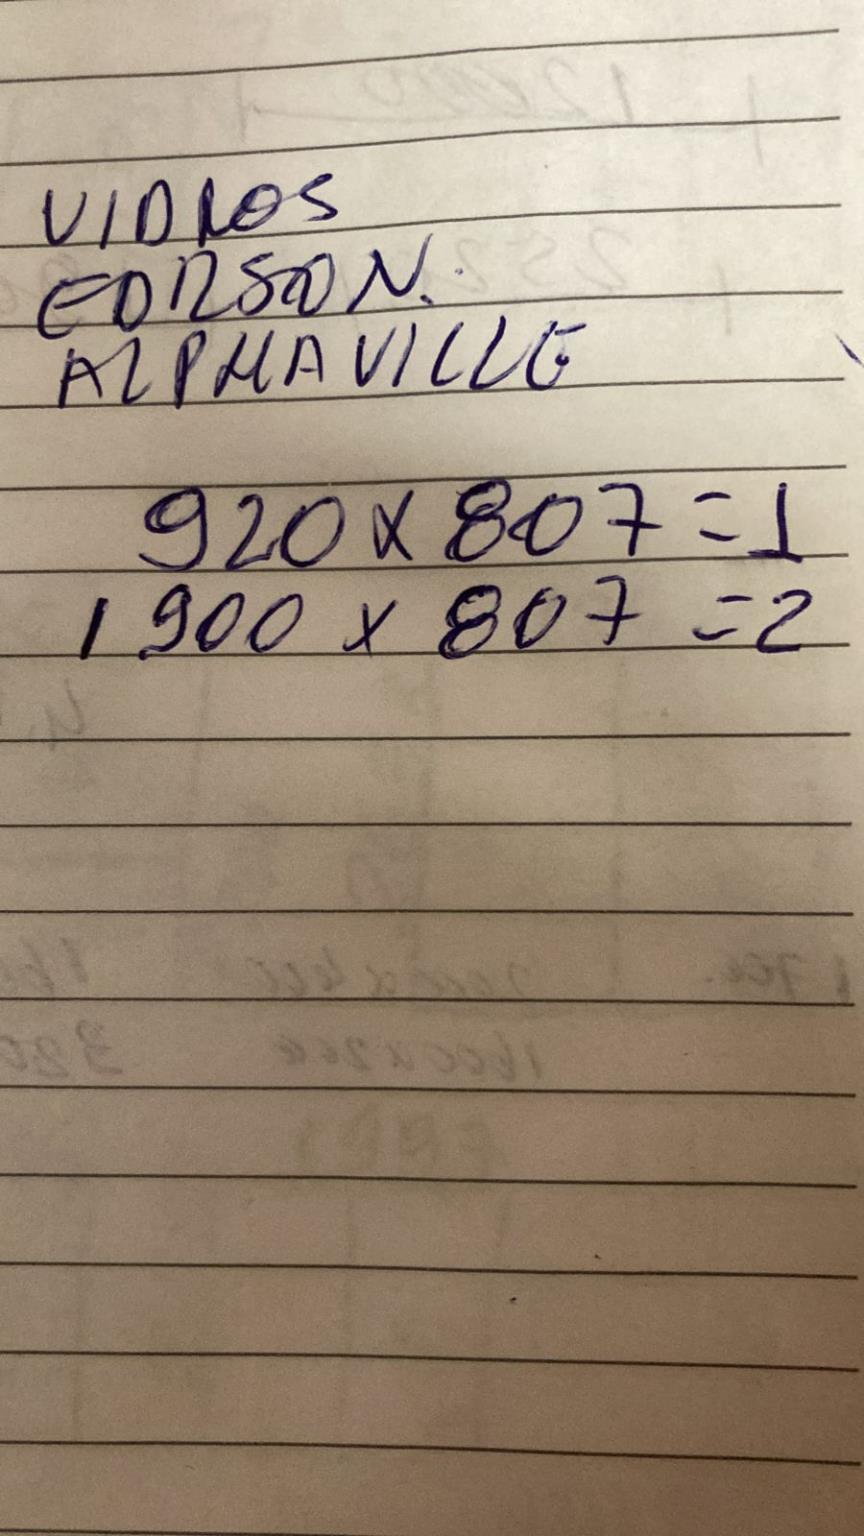 VIDROS
EDRSON.
ALPHAVILLE
920 x 807 = 1
1900 x 807 = 2